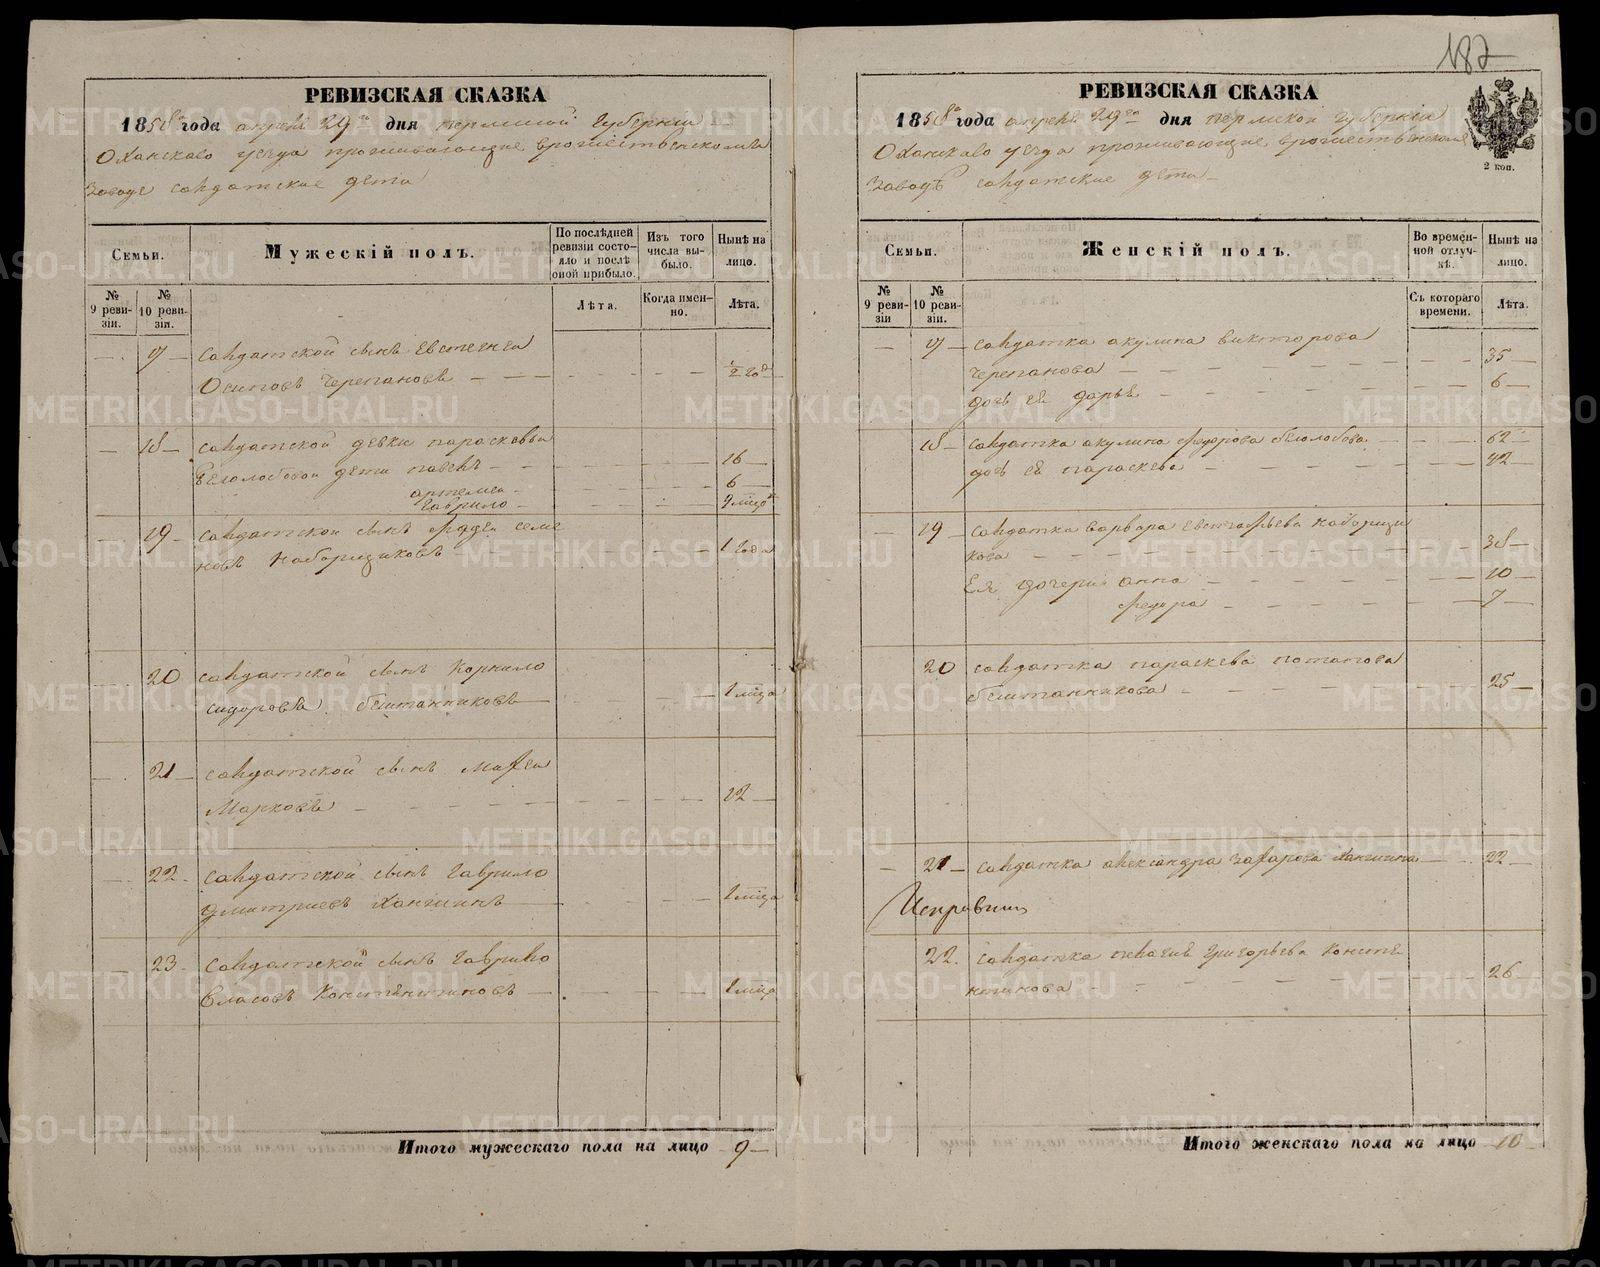 187
РЕВИЗСКАЯ СКАЗКА
1858го года апреля 29го дня пермской Губернии
Оханскаго уезда проживающие врожественскомъ
Заводе солдатские дети
Семьи.
Мужескій полъ.
По послѣдней ревизіи состояло и послѣ оной прибыло.
Изъ того числа выбыло.
Нынѣ на лицо.
№ 9 ревизіи.
№ 10 ревизіи.
Лѣта.
Когда именно.
Лѣта.
17 солдатской сынъ Евстегнеа
Осиповъ Черепановъ 1/2 год
18 солдатской девки параскевы
Белолобовой дети павелъ 16
артемеи 6
Гаврило 9 мѣсе
19 солдатской сынъ Фадеа Семе
новъ Наборщиковъ 1 года
20 солдатской сынъ Корнило
сидоровъ бештанниковъ 1 мѣсца
21 солдатской сынъ Матеа
Марковъ 12
22 солдатской сынъ Гаврило
Дмитриевъ Ханжинъ 1 мѣсца
23 солдатской сынъ Гаврило
Власовъ Константиновъ 1 мѣсца
Итого мужескаго пола на лицо 9
РЕВИЗСКАЯ СКАЗКА
1858го года апреля 29го дня пермской Губерніи
Оханскаго уезда проживающие врожественскомъ
Заводѣ солдатские дети
2 коп.
Семьи.
Женскій полъ.
Во временной отлучкѣ.
Нынѣ на лицо.
№ 9 ревизіи
№ 10 ревизіи.
Съ котораго времени.
Лѣта.
17 солдатка акулина викторова
Черепанова 35
дочь ея дарья 6
18 солдатка акулина Федорова белолобова 62
дочь ея параскева 42
19 солдатка Варвара Евстафьева наборщи
кова 38
Ея дочери анна 10
Федора 7
20 солдатка параскева потапова
бештанникова 25
21 солдатка александра Захарова Ханжина 22
Исправниц
22 солдатка пелагия Григорьева Конста
нтинова 26
Итого женскаго пола на лицо 10
METRIKI.GASO-URAL.RU